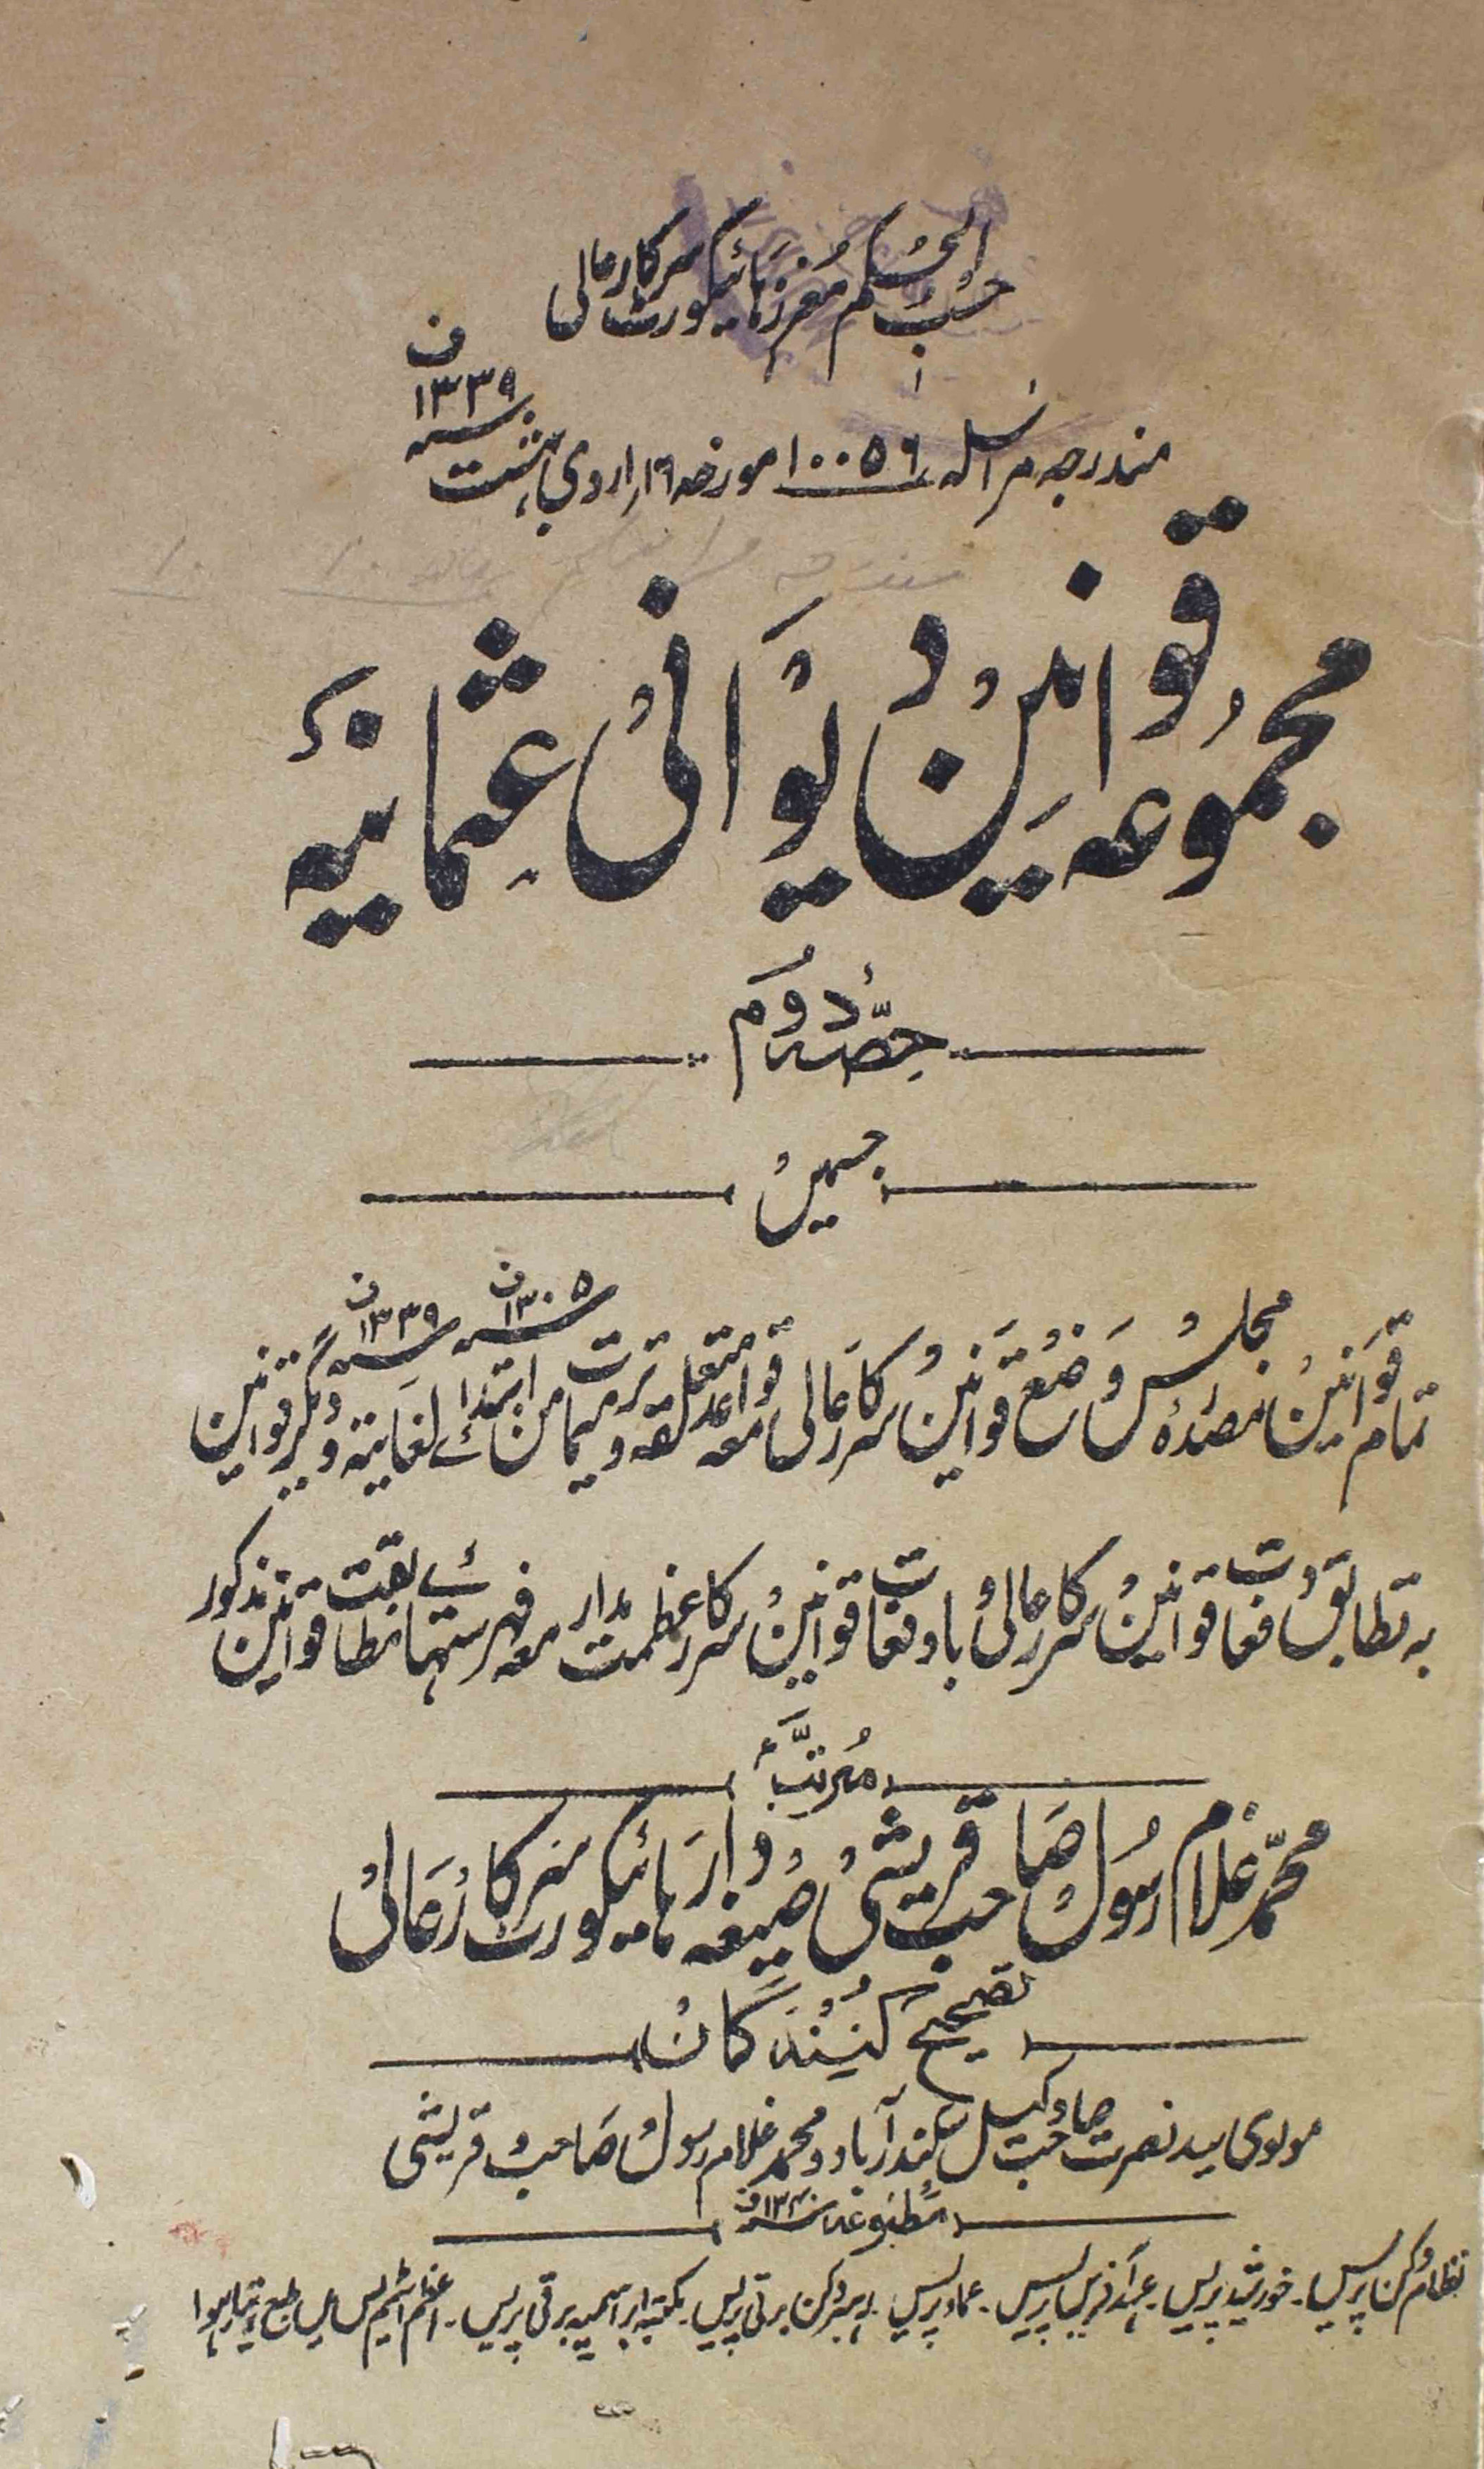 حسب الحکم معزز ہائیکورٹ سرکار عالی
مندرجہ مراسلہ ۱۰۰۵۶ مورخہ ۱۶؍ اردی بہشت سنہ ۱۳۳۹ ف
مجموعہ قوانین دیوانی عثمانیہ
حصہ دوم
جسمیں
تمام قوانین مصدرہ مجلس وضع قوانین سرکار عالی معہ قواعد متعلقہ و ترمیمات من ابتدائے سنہ ۱۳۰۵ ف لغایتہ سنہ ۱۳۳۹ ف و دیگر قوانین
بہ تطابق دفعات قوانین سرکار عالی بادفعات قوانین سرکار عظمت مدار معہ فہرستہائے مطابقت قوانین مذکور
مرتبہ
محمد غلام رسول صاحب قریشی صیغہ دار ہائیکورٹ سرکار عالی
تصحیح کنندگان
مولوی سید نصرت صاحب وکیل سکندرآباد و محمد غلام رسول صاحب قریشی
مطبوعہ سنہ ۱۳۴۰ ف
نظام دکن پریس۔ خورشید پریس۔ عہد آفریں پریس۔ عماد پریس۔ رہبر دکن برقی پریس۔ مکتبہ ابراہیمیہ برقی پریس۔ اعظم اسٹیم پریس میں طبع و تیار ہوا